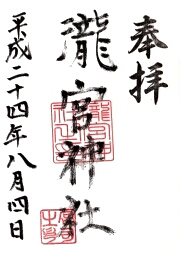 奉拝
瀧宮神社
平成二十四年八月四日